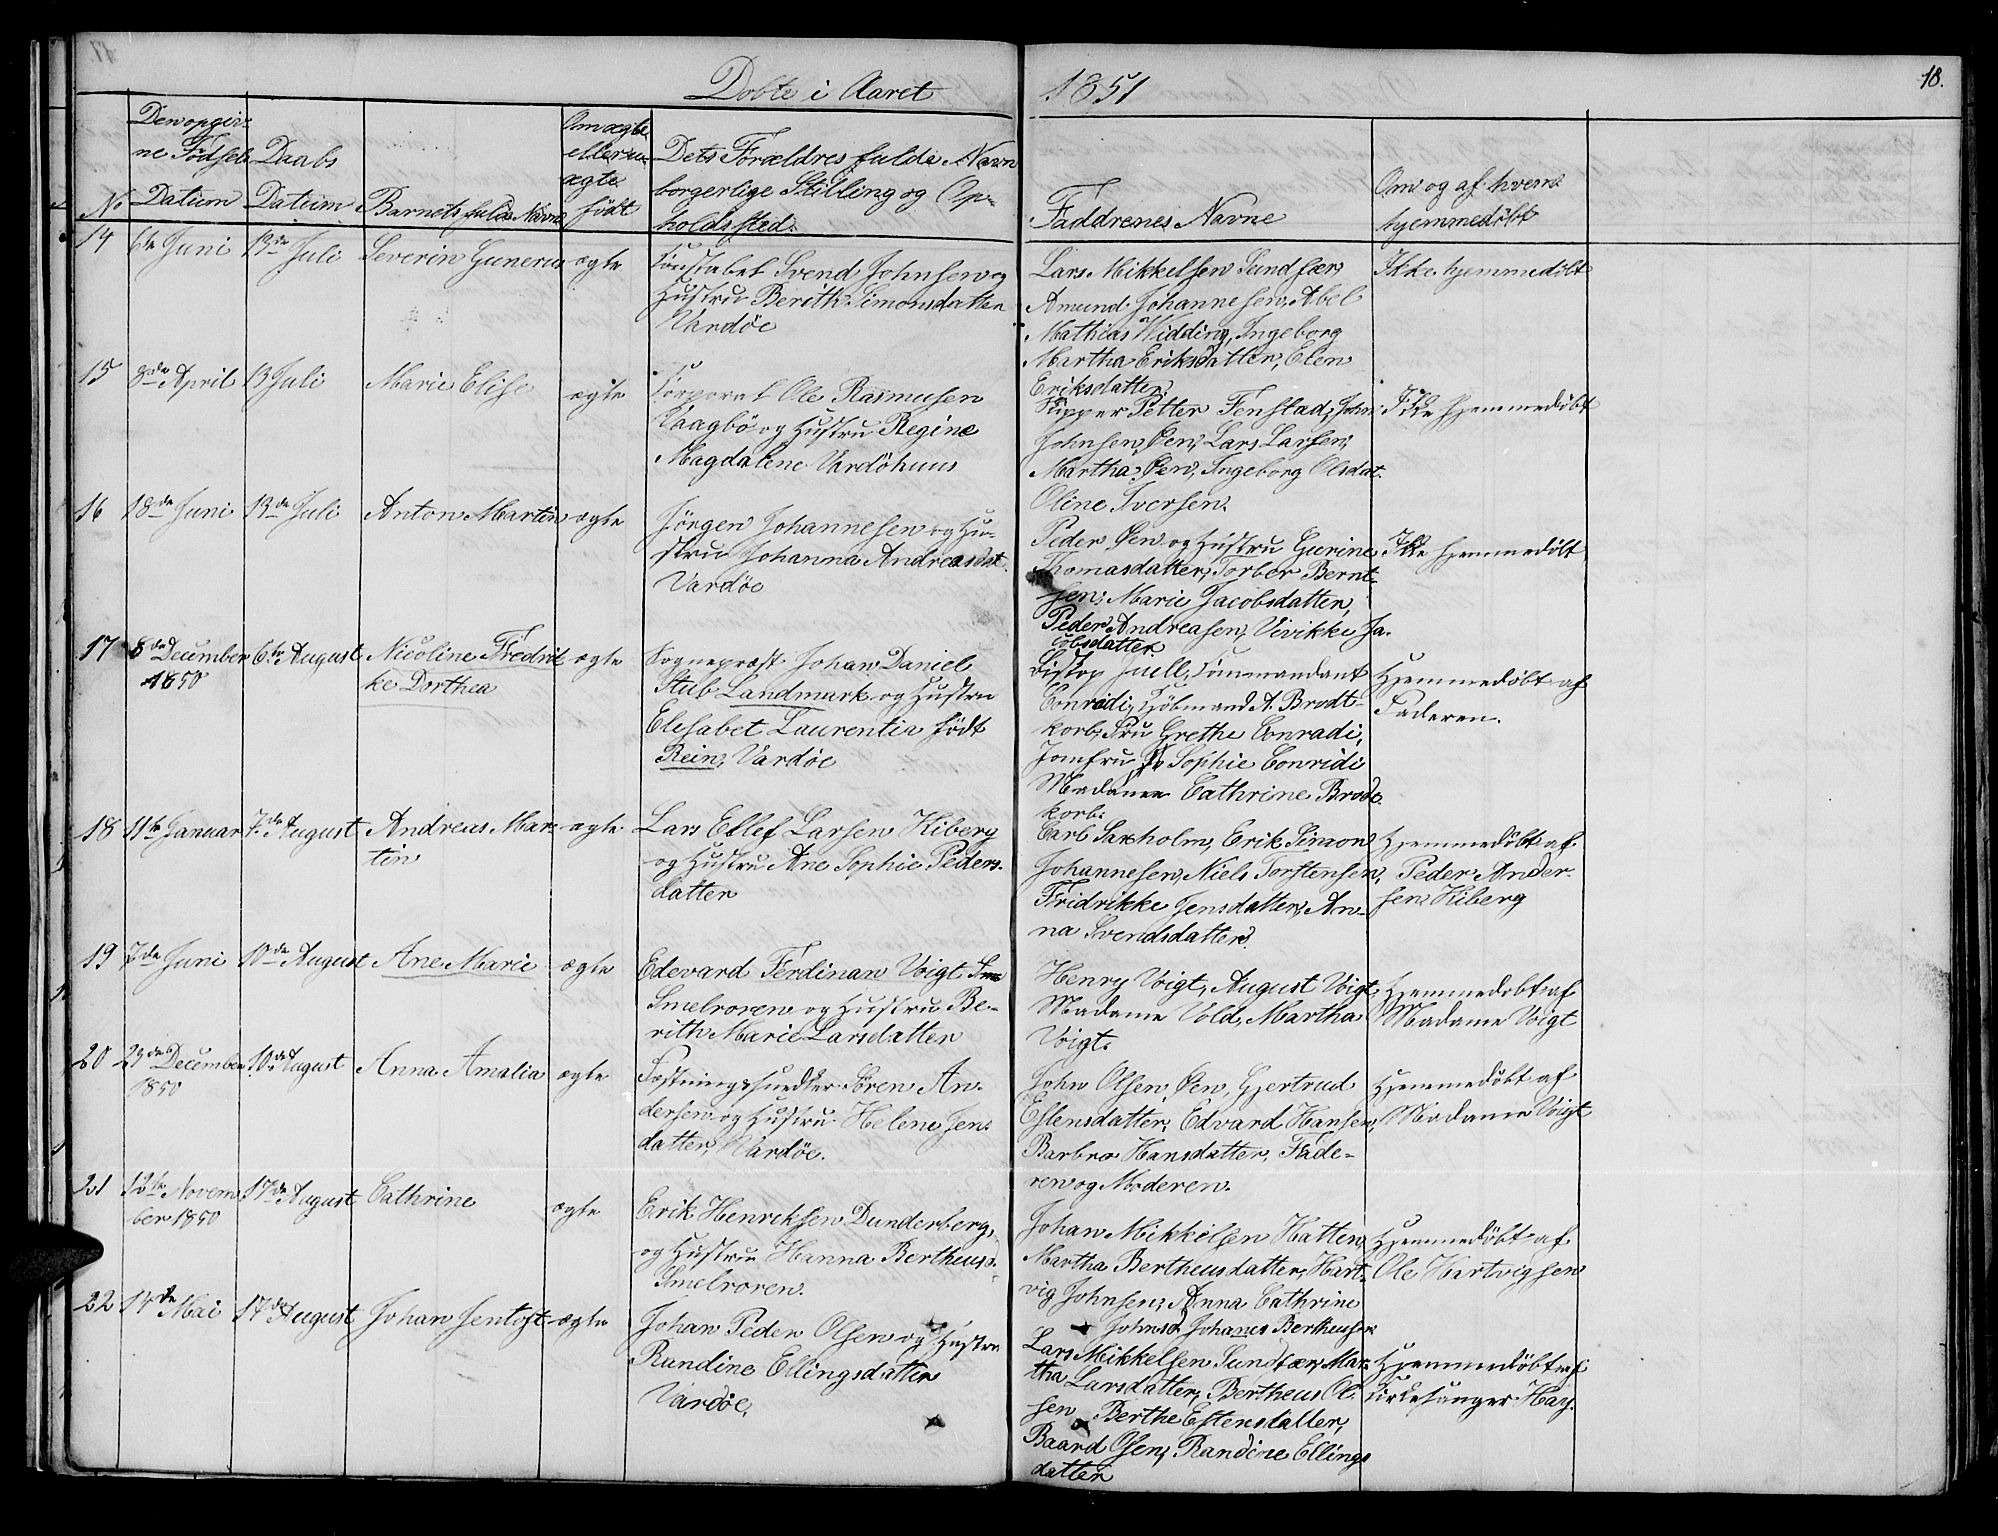 Döbte i Aaret
1851
18.
No
Den opgiv-
ne Födsels
Datum
Daabs
Datum
Barnets fulde Navn
Om ægte
eller u-
ægte
födt
Dets Forældres fulde Navn
borgerlige Stilling og Op-
holdssted.
Faddrenes Navne
Om og af hvem
hjemmedöbt
14 6te Juni 13de Juli Severin Gunerius ægte
Svend Johnsen og
Hustru Berith Simonsdatter
Vardöe
Lars Mikkelsen Sundfær,
Amund Johannesen, Abel
Mathias Widding, Ingeborg
Martha Eriksdatter, Elen
Eriksdatter.
Ikke hjemmedöbt
15 8de April 13 Juli Marie Elise ægte
Corporal Ole Rasmusen
Vaagbö og Hustru Regine
Magdalene Vardöhuus
Petter Fenstad, John
Johnsen Øen, Lars Larsen,
Martha Øen, Ingeborg Olsdat.
Oline Iversen.
Ikke hjemmedöbt
16 18de Juni 13de Juli Anton Martin ægte
Jörgen Johannesen og Hu-
stru Johanna Andreasdat.
Vardöe
Peder Øen og Hustru Gurine
Thomasdatter, Torber Bernt-
sen, Marie Jacobsdatter,
Peder Andreasen, Vivikke Ja-
cobsdatter
Ikke hjemmedöbt
17 8de December 6te August Nicoline Fredrik- ægte
1850
ke Dorthea
Sognepræst Johan Daniel
Stub Landmark og Hustru
Elisabet Laurentia födt
Rein, Vardöe
Biskop Juell, Commandant
Conradi, Kjöbmand A. Brodt-
korb, Fru Grethe Conradi,
Jomfru Sophie Conradi
Madame Cathrine Brodt-
korb.
Hjemmedöbt af
Faderen.
18 11te Januar 7de August Andreas Mar- ægte
tin
Lars Ellef Larsen Kiberg
og Hustru Ane Sophie Peders-
datter
Carl Saxholm, Erik Simon
Johannesen, Niels Torstensen,
Fridrikke Jensdatter, An-
na Svendsdatter.
Hjemmedöbt af
Peder Ander-
sen Kiberg
19 7de Juni 10de August Ane Marie ægte
Edevard Ferdinan Voigt
Smelroren og Hustru Be-
rith Marie Larsdatter
Henry Voigt, August Voigt,
Madame Vold, Martha
Voigt.
Hjemmedöbt af
Madame Voigt
20 29de December 10de August Anna Amalia ægte
1850
Fæstningssnedker Sören An-
dersen og Hustru Helene Jens-
datter, Vardöe.
John Olsen Øen, Gjertrud
Estensdatter, Edvard Hansen,
Barbro Hansdatter, Fade-
ren og Moderen.
Hjemmedöbt af
Madame Voigt
21 12te Novem- 17de August Cathrine ægte
ber 1850
Erik Henriksen Dunderberg,
og Hustru Hanna Bertheusd.
Smelroren.
Johan Mikkelsen Hatten,
Martha Bertheusdatter, Hart-
vig Johnsen, Anna Cathrine
Johnsd. Johanes Bertheusen
Hjemmedöbt af
Ole Hartvigsen
22 14de Mai 17de August Johan Jentoft ægte
Johan Peder Olsen og Hustru
Randine Ellingsdatter
Vardöe.
Lars Mikkelsen Sundfær, Mar-
tha Larsdatter, Bertheus Ol-
sen Berthe Estensdatter,
Baard Olsen, Randine Ellings-
datter
Hjemmedöbt af
Kirkesanger Hay.